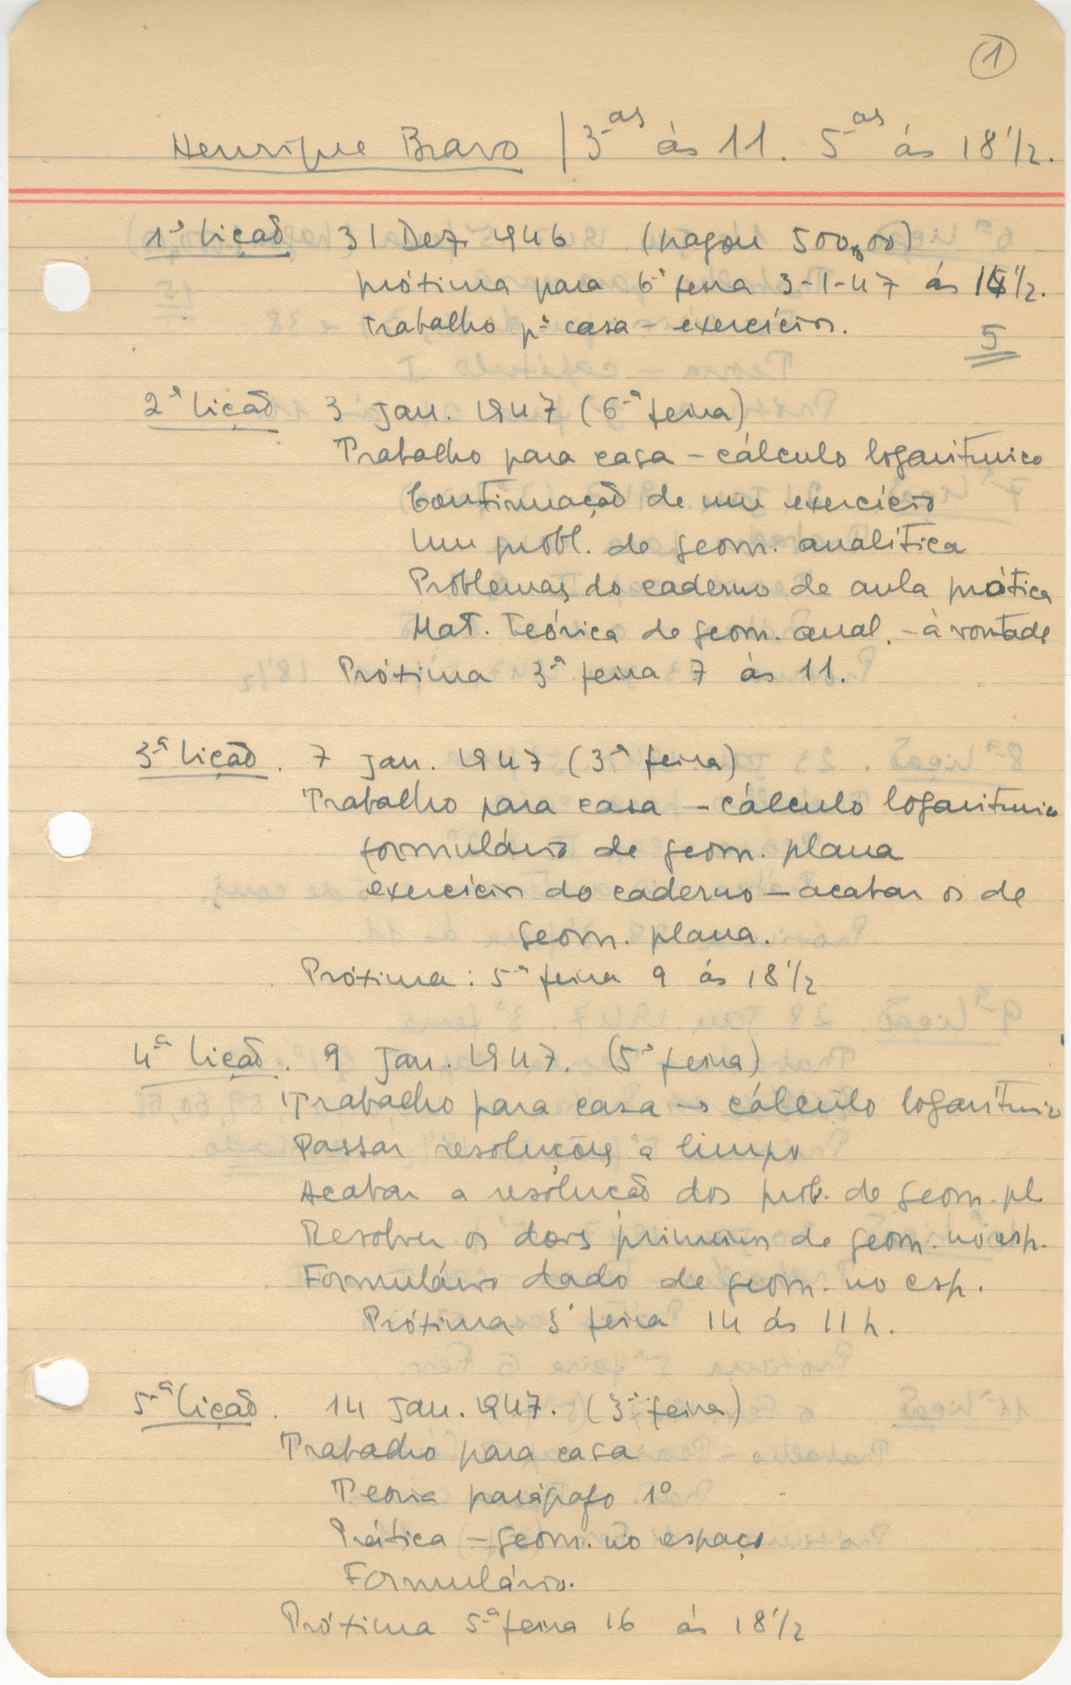 1
Henrique Bravo | 3-as ás 11. 5-as ás 18 1/2.
1ª lição 31 Dez 1946 (pagou 500,00)
próxima para 6ª feira 3-1-47 ás 1 1/2.
Trabalho pª casa - exercícios.
5
2ª lição 3 Jan. 1947 (6-ª feira)
Trabalho para casa - cálculo logarítmico
Continuação de um exercício
Um probl. de geom. analítica
Problemas do caderno de aula prática
Mat. Teórica de geom. anal. - à vontade
Próxima 3ª feira 7 ás 11.
3-ª lição. 7 Jan. 1947 (3-ª feira)
Trabalho para casa - cálculo logarítmico
formulário de geom. plana
exercícios do caderno - acabar os de
geom. plana.
Próxima: 5-ª feira 9 ás 18 1/2
4ª lição. 9 Jan. 1947. (5ª feira)
Trabalho para casa -> cálculo logarítmico
Passar resoluções a limpo
Acabar a resolução dos prob. de geom. pl
Resolver os dois primeiros de geom. no esp.
Formulário dado de geom. no esp.
Próxima 3ª feira 14 ás 11 h.
5-ª lição. 14 Jan. 1947. (3-ª feira)
Trabalho para casa
Teoria parágrafo 1º
Prática - geom. no espaço
Formulário.
Próxima 5-ª feira 16 ás 18 1/2